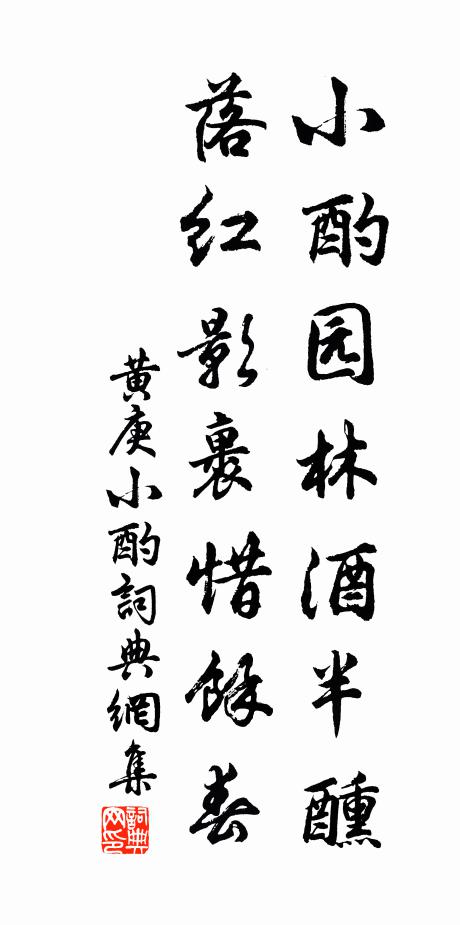 小酌园林酒半醺
落红影裏惜餘春
黄庚小酌詞典網集
詞典网印